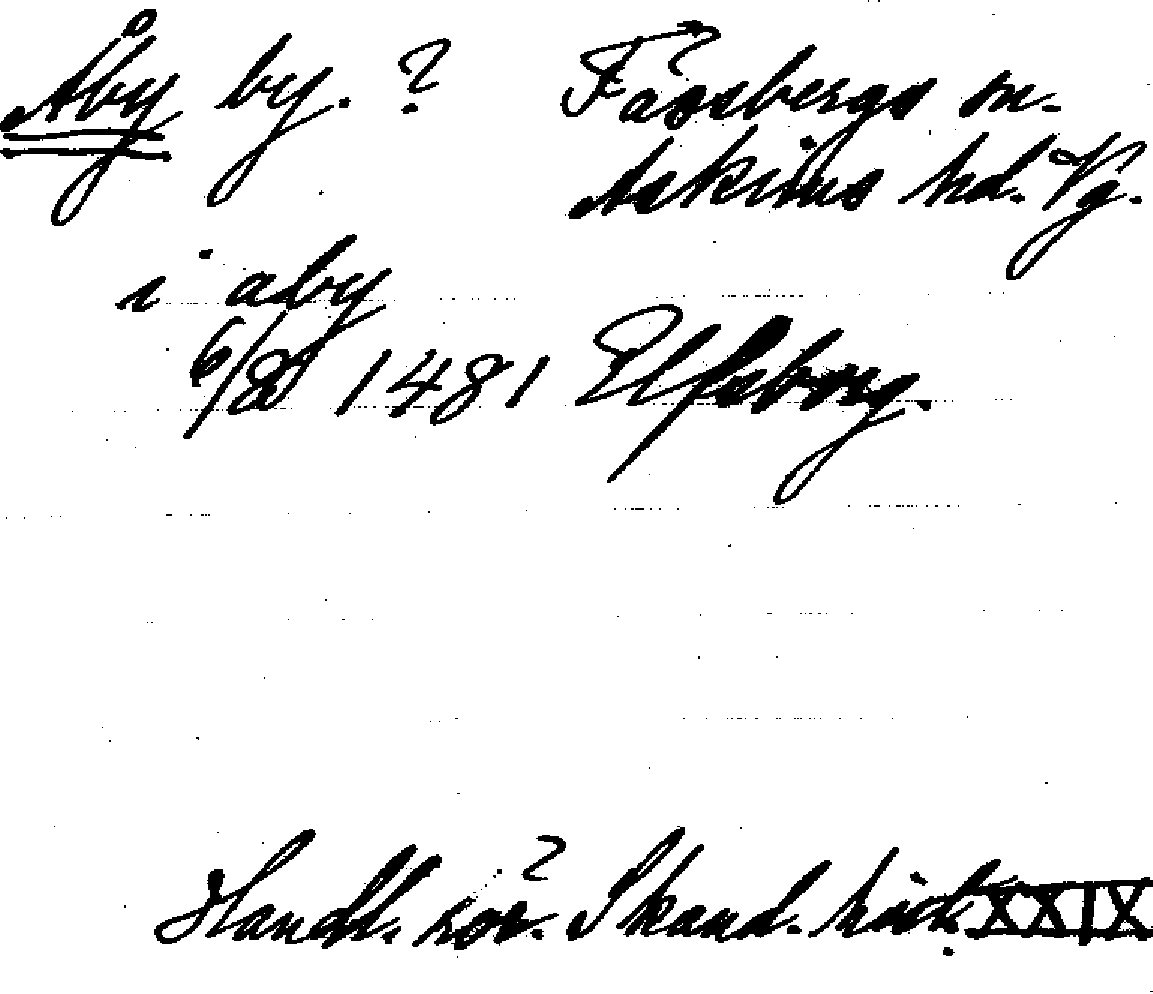 Åby by. ? Fässbergs sn.
Askims hd. Vg.
i aby
6/8 1481 Elfsborg.
Handl. rör. Skand. hist. XXIX